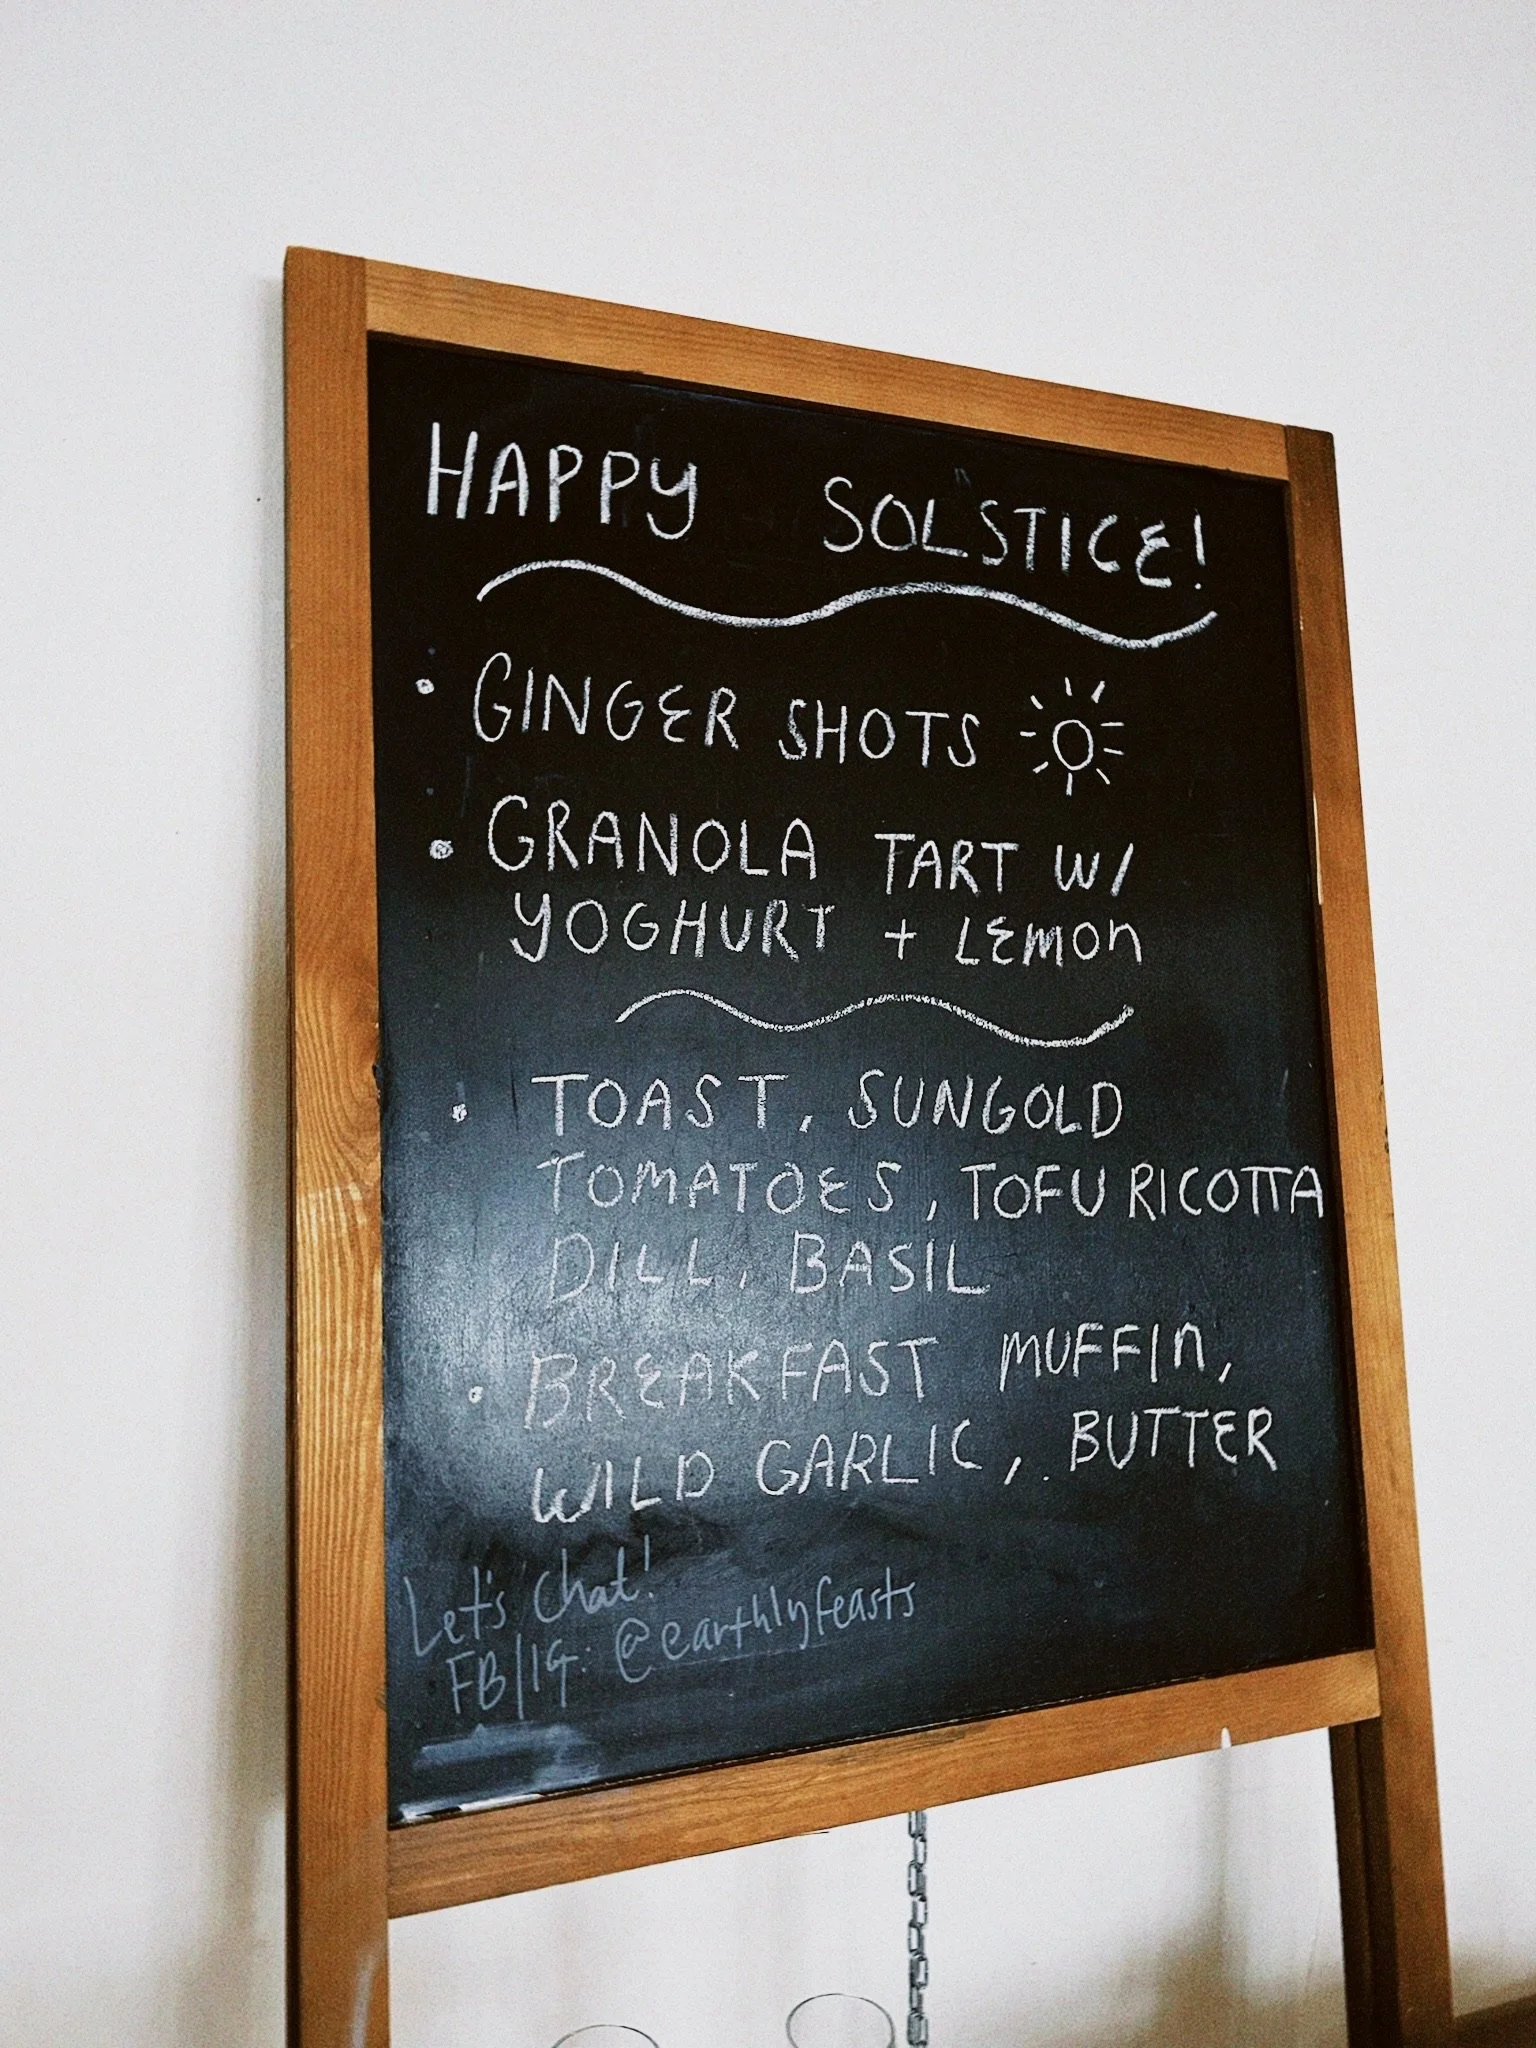 HAPPY SOLSTICE!
• GINGER SHOTS
• GRANOLA TART W/
YOGHURT + LEMON
• TOAST, SUNGOLD
TOMATOES, TOFU RICOTTA
DILL, BASIL
• BREAKFAST MUFFIN,
WILD GARLIC, BUTTER
Let's chat!
FB/IG: @earthlyfeasts